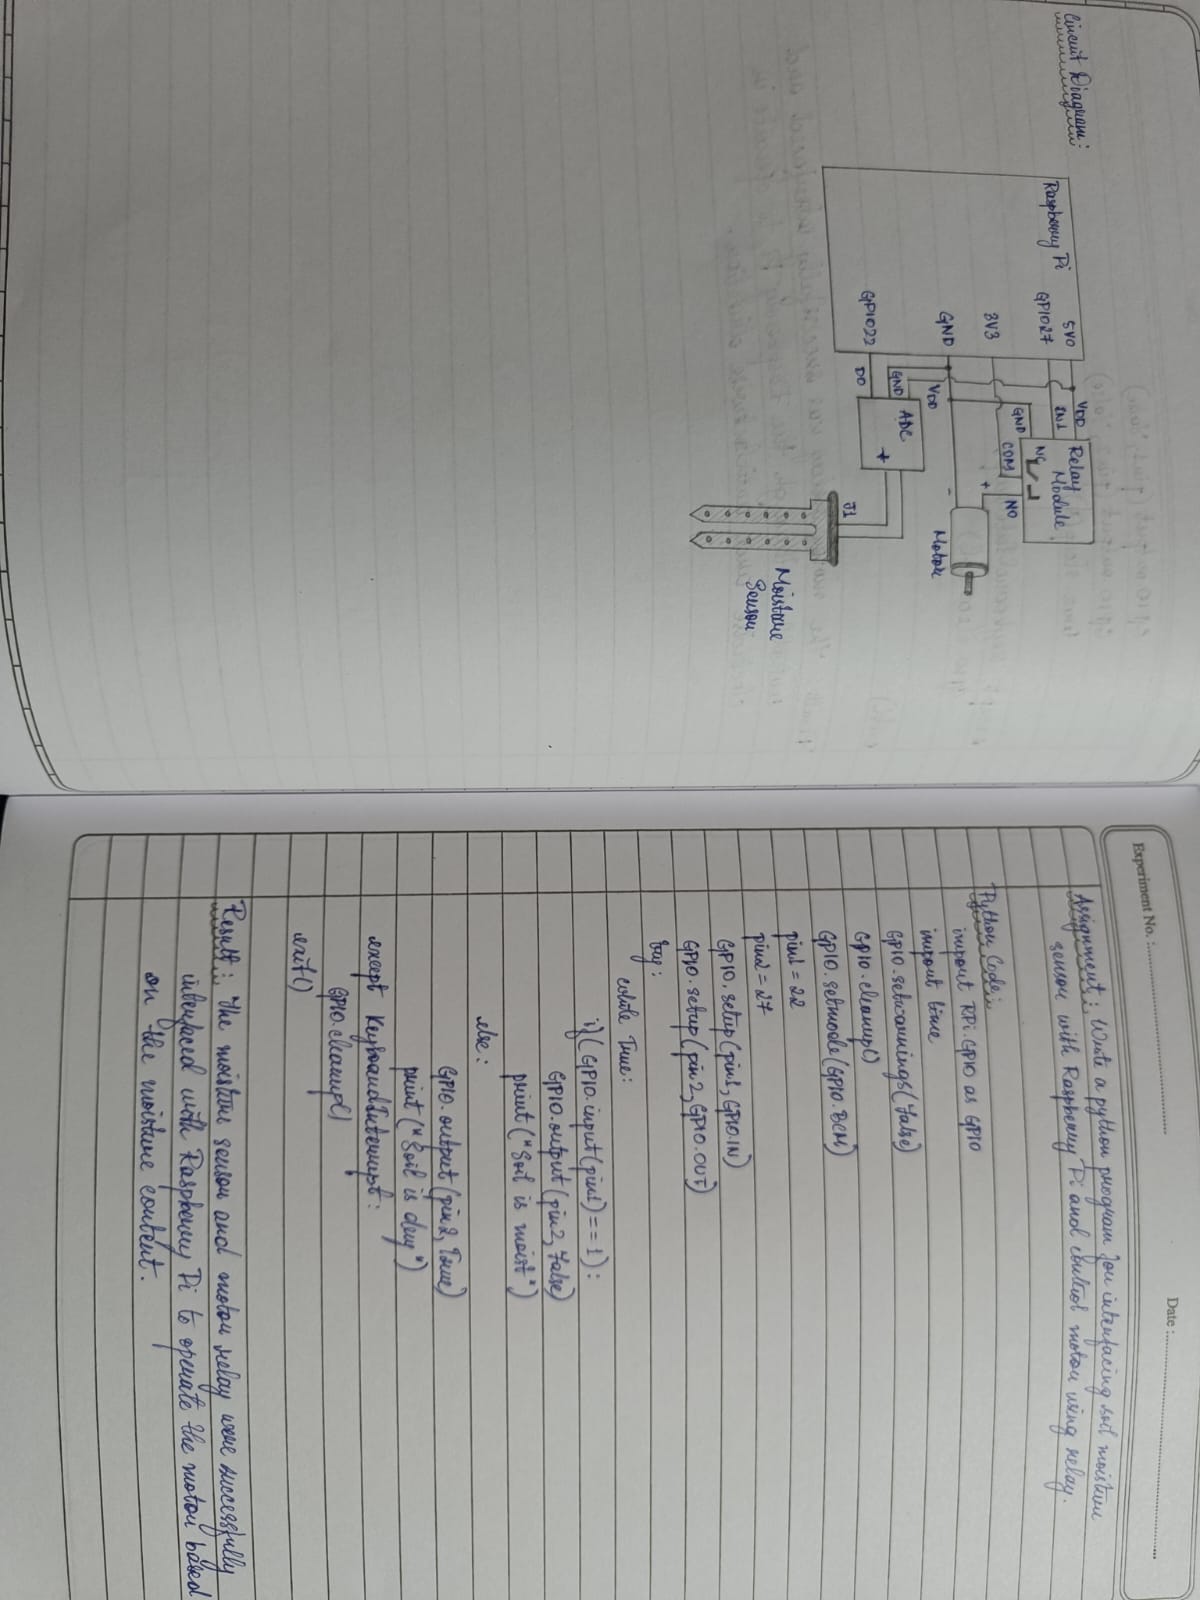 Circuit Diagram:
Raspberry Pi
5V0
GPIO27
3V3
GND
GPIO22
VDD
IN1
GND
Relay
Module
NC
COM
NO
+
-
Motor
VDD
GND
DO
ADC
+
J1
Moisture
Sensor
Experiment No. :
Date :
Assignment: Write a python program for interfacing soil moisture
sensor with Raspberry Pi and control motor using relay.
Python Code:
import RPi.GPIO as GPIO
import time
GPIO.setwarnings(False)
GPIO.cleanup()
GPIO.setmode(GPIO.BCM)
pin1 = 22
pin2 = 27
GPIO.setup(pin1, GPIO.IN)
GPIO.setup(pin2, GPIO.OUT)
try:
while True:
if(GPIO.input(pin1)==1):
GPIO.output(pin2, False)
print("Soil is moist")
else:
GPIO.output(pin2, True)
print("Soil is dry")
except KeyboardInterrupt:
GPIO.cleanup()
exit()
Result: The moisture sensor and motor relay were successfully
interfaced with Raspberry Pi to operate the motor based
on the moisture content.